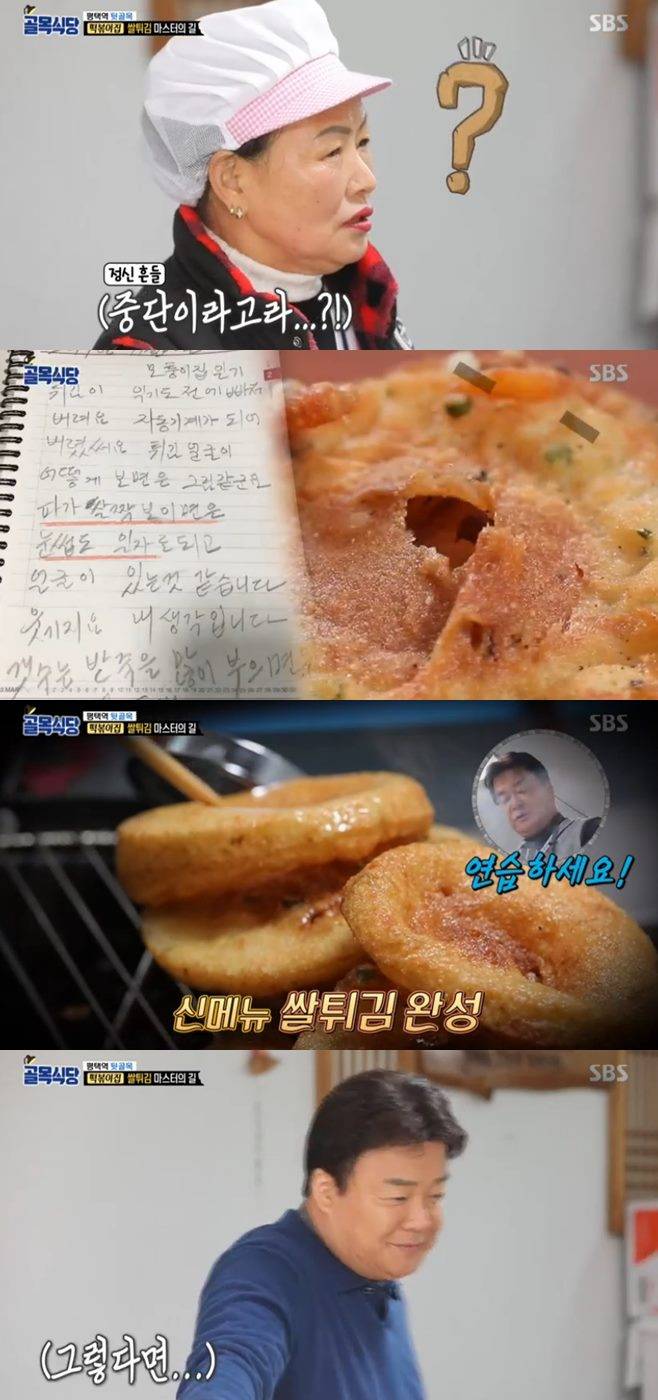 골목식당
평택역 뒷골목
떡볶이집 쌀튀김 마스터의 길
SBS
정신 흔들
(중단이라고라...?!)
골목식당
SBS
모퉁이집 완기
튀김이 위기도 전에 빠져
버려요 자동기계가 되어
버렸써요 튀김 얼굴이
어떻게 보면은 그림같군요
파가 쌀짝 보이면은
눈썹도 인자로되고
얼굴이 있는것 같습니다
웃기지요 내 생각입니다
갯수는 반죽을 많이 부으면
골목식당
평택역 뒷골목
떡볶이집 쌀튀김 마스터의 길
SBS
연습하세요!
신메뉴 쌀튀김 완성
골목식당
평택역 뒷골목
떡볶이집 쌀튀김 마스터의 길
SBS
(그렇다면...)